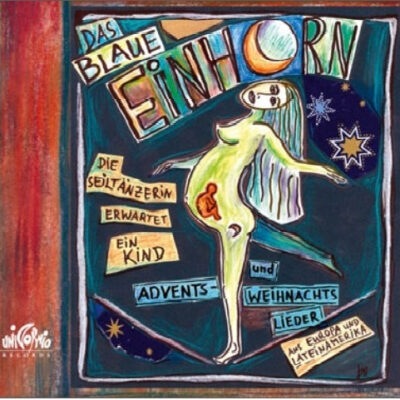 DAS
BLAUE
EINHORN
DIE
SEILTÄNZERIN
ERWARTET
EIN
KIND
und
ADVENTS-
WEIHNACHTS
LIEDER
AUS EUROPA UND
LATEINAMERIKA
UNICORNIO
RECORDS